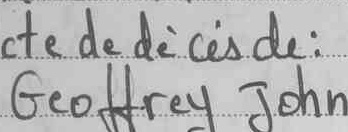 cte de décès de:
Geoffrey John